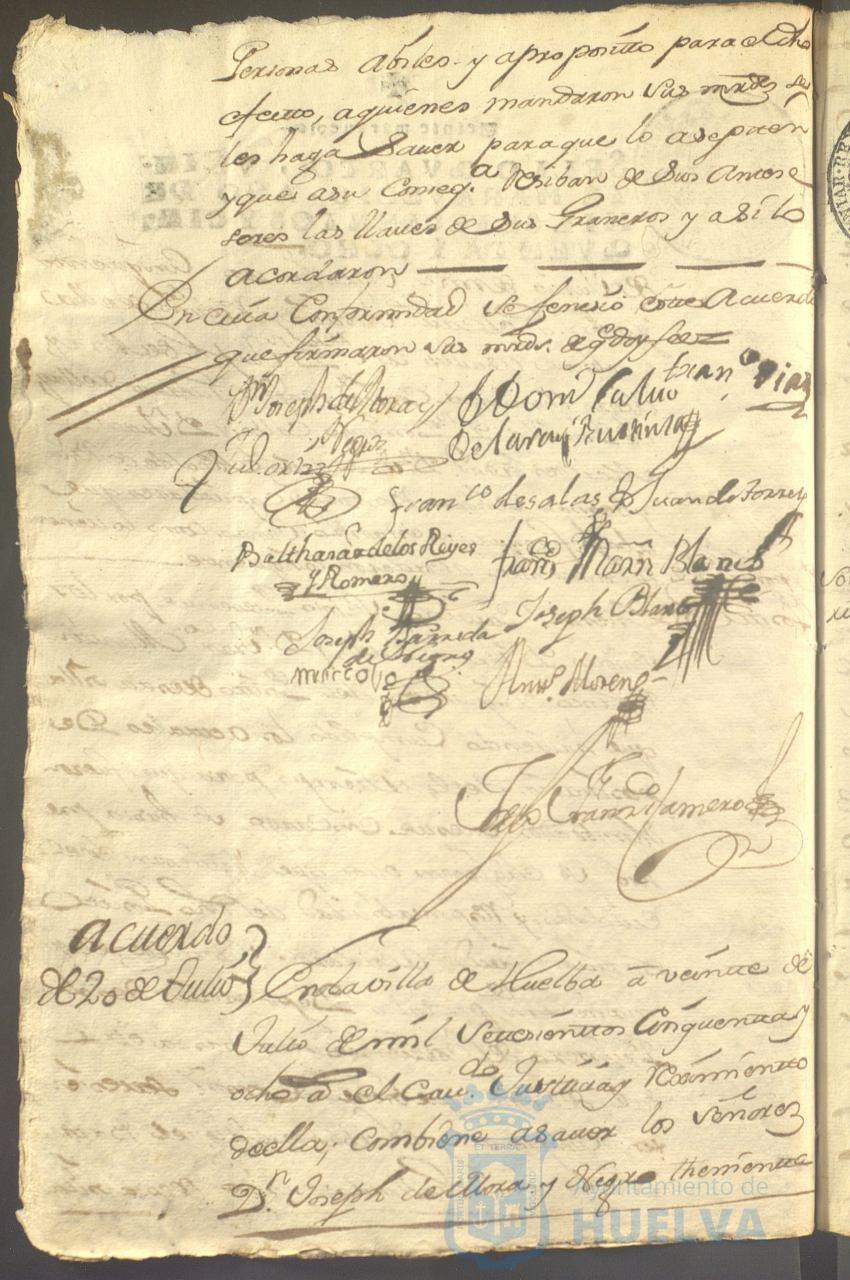 Personas abiles y aproposito para el dho
efecto, aquienes mandaron Sus mrds se
les haga Saver para que lo asepten
y que asu Conseq.a Resiban de Sus Antese
sores las llaves de Sus Graneros y asi lo
acordaron
En cuia Conformidad se fenesió este Acuerdo
que firmaron sus mrds. de q doy fee=
Dn Joseph de Mora y
Negro
Dom Calvo
Fran.co Diaz
de la rau
Fran.co de salas
Juan de Torres
Balthasar de los Reyes
y Romero
Fran.co Marin Blanco
Joseph Barreda
Joseph Blanco
Antt.o Moreno
Fran.co Romero
acuerdo
de 20 de Julio
En la villa de Huelba a veinte de
Julio de mill Setesientos Cinquenta y
ocho as el Cav.do Justicia y Reximiento
de ella, combiene asaver los Señores
D.n Joseph de Mora y Negro theniente
Ayuntamiento de
HUELVA